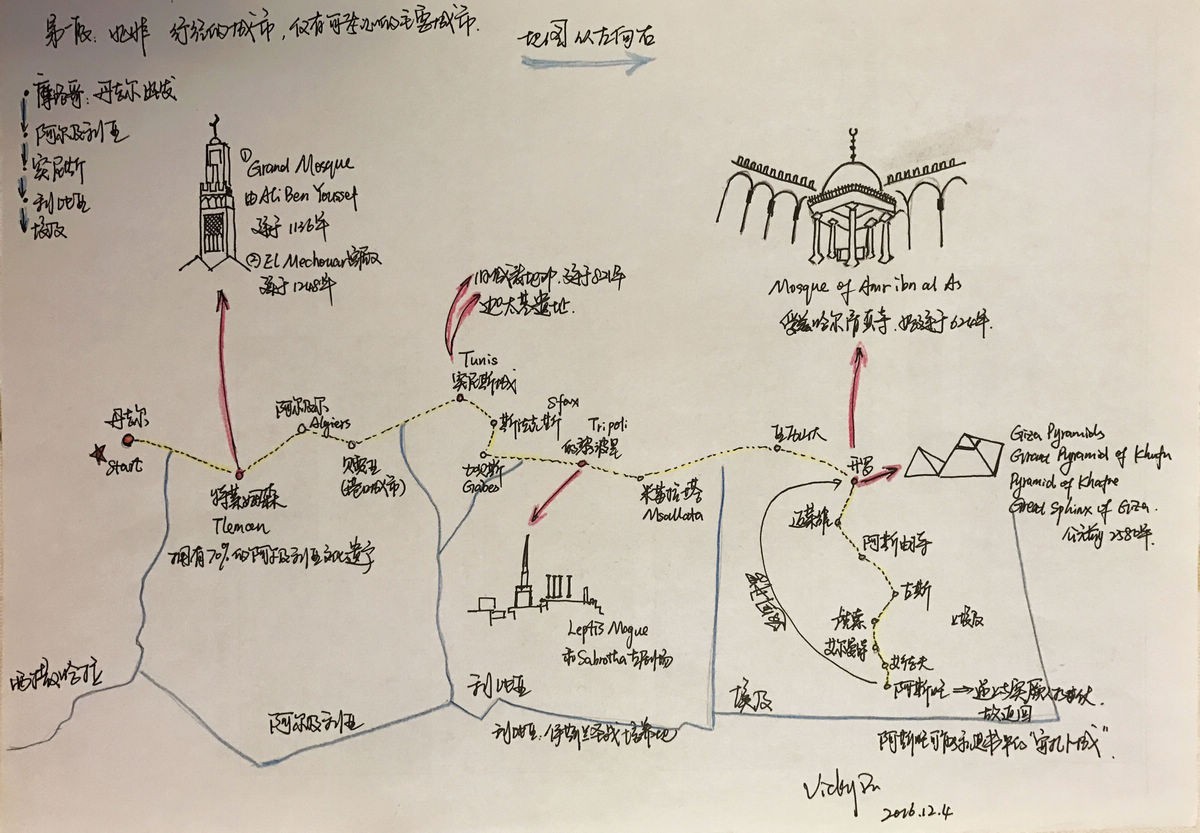 第一版:北非 途经的城市,仅有可参观的主要城市.
地图从左向右
摩洛哥:丹吉尔出发
阿尔及利亚
突尼斯
利比亚
埃及
① Grand Mosque
由Ali Ben Youssef
建于1136年
② El Mechouar宫殿
建于1248年
旧城麦地那,建于
迦太基遗址.
Mosque of Amr ibn al As
清真寺,始建于
丹吉尔
Start
特莱姆森
Tlemcen
拥有70%的阿尔及利亚文化遗产
阿尔及尔
Algiers
贝贾亚
(港口城市)
Tunis
突尼斯城
斯法克斯
Sfax
加贝斯
Gabes
Tripoli
的黎波里
米苏拉塔
Msallata
Leptis Mague
和Sabrotha古剧场
亚历山大
开罗
Giza Pyramids
Grand Pyramid of Khufu
Pyramid of Khafre
Great Sphinx of Giza.
公元前2580年.
迈莱维
阿斯由特
古斯
卢克索
艾尔曼特
艾德夫
阿斯旺
埃及
西撒哈拉
阿尔及利亚
利比亚
利比亚:伊斯兰圣战培养地
埃及
故返回
Vicky
2016.12.4